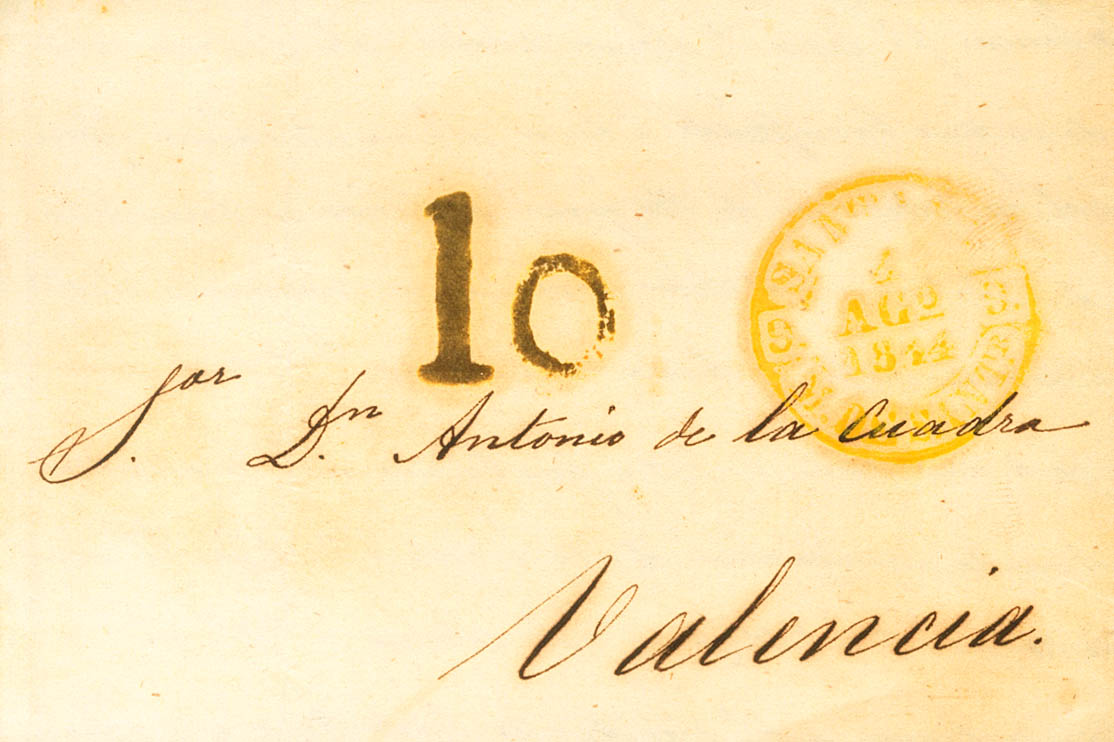 10
4
AGO
1844
Sor. Dn. Antonio de la Cuadra
Valencia.